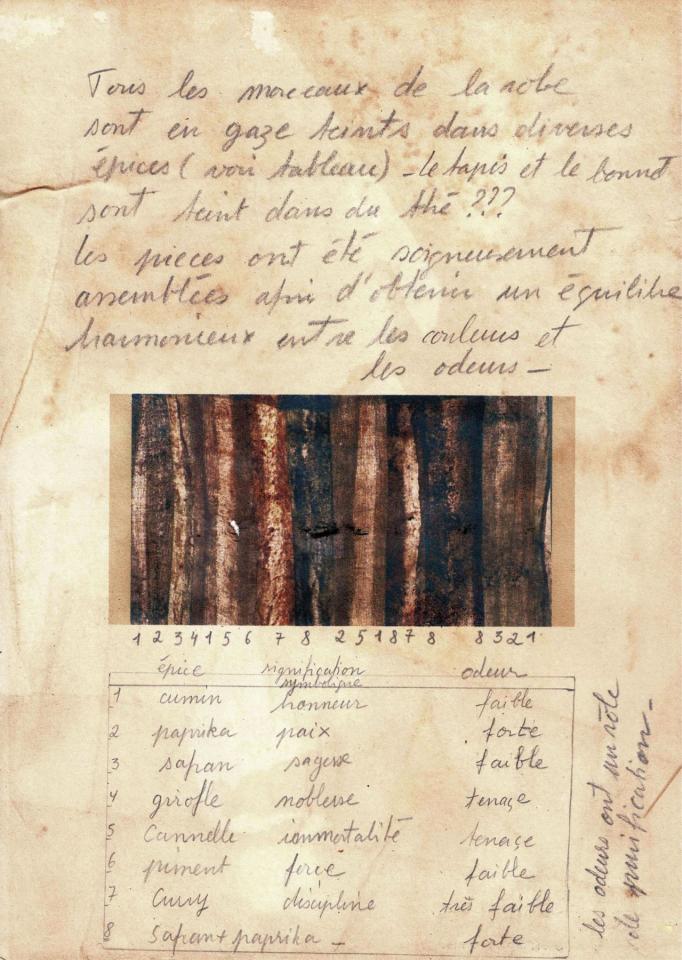 Tous les morceaux de la robe
sont en gaze teints dans diverses
épices ( voir tableau) - le tapis et le bonnet
sont teint dans du thé ???
les pieces ont été soigneusement
assemblées afin d'obtenir un équilibre
harmonieux entre les couleurs et
les odeurs -
1 2 3 4 1 5 6 7 8 2 5 1 8 7 8 8 3 2 1
épice signification symbolique odeur
1 cumin honneur faible
2 paprika paix forte
3 safran sagesse faible
4 girofle noblesse tenace
5 Cannelle immortalité tenace
6 piment force faible
7 Curry discipline très faible
8 Safran + paprika - forte
les odeurs ont un rôle
de purification -